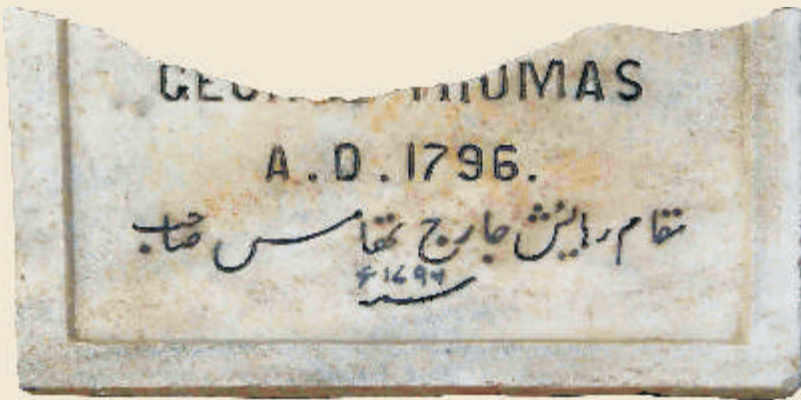 GEORGE THOMAS
A.D.1796.
مقام رہائش جارج تھامس صاحب
سنہ ۱۷۹۶ء